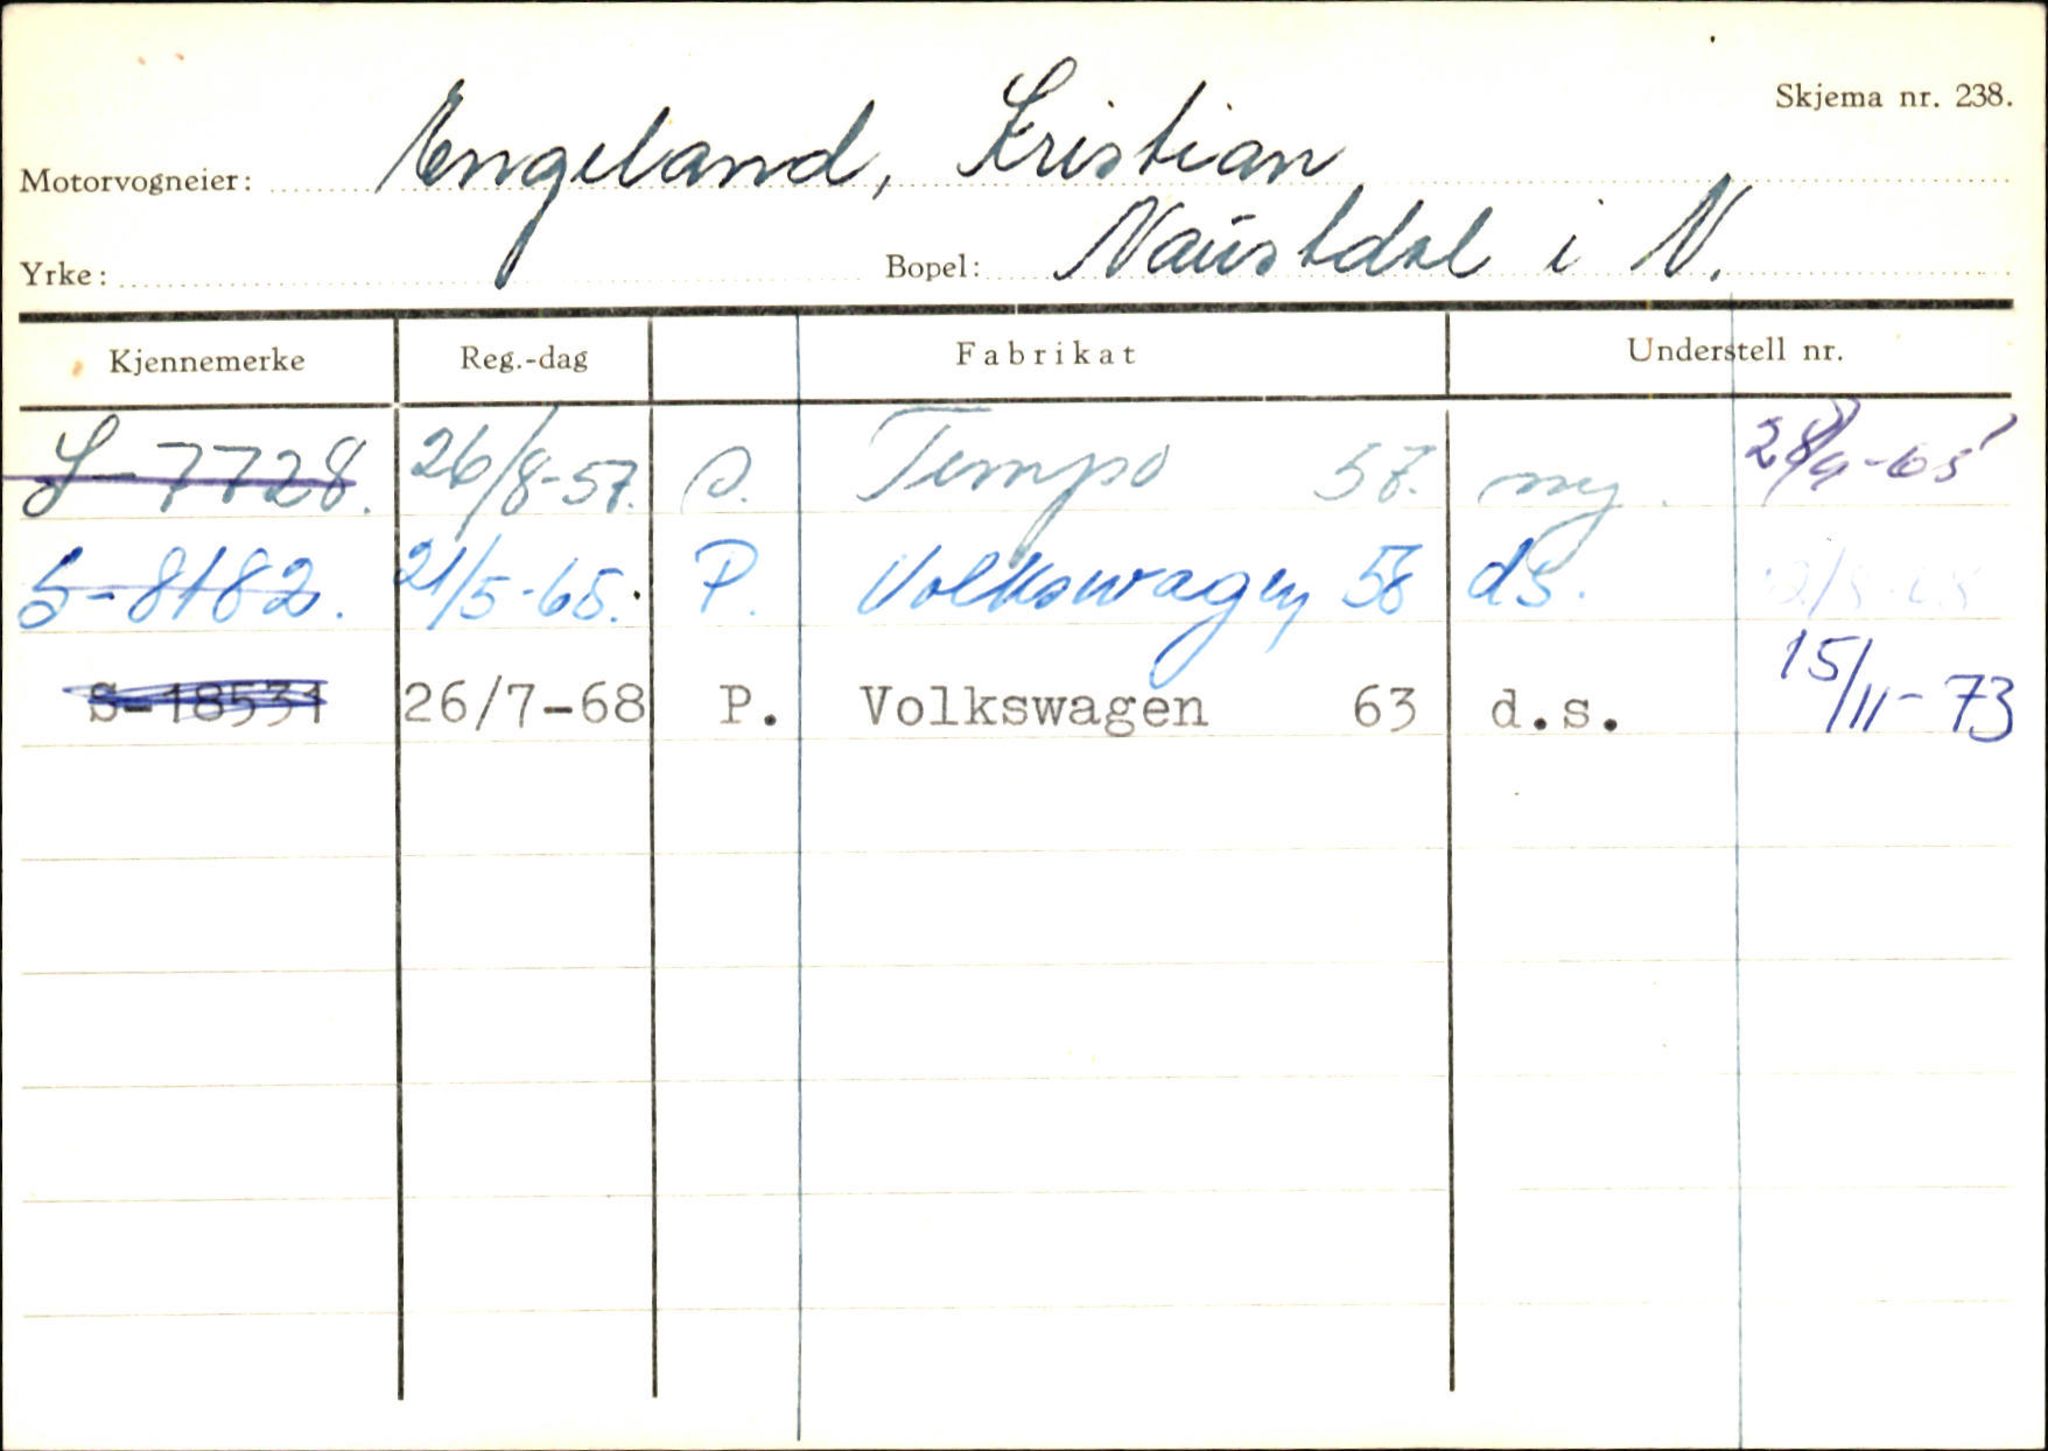 Skjema nr. 238.
Motorvogneier: Engeland, Kristian
Yrke: Bopel: Naustdal i N.
Kjennemerke Reg.-dag Fabrikat Understell nr.
S-7728. 26/8-57. Tempo 57. ny. 28/9-65
S-8182. 21/5-65. P. Volkswagen 58 ds.
S-18531 26/7-68 P. Volkswagen 63 d.s. 15/11-73